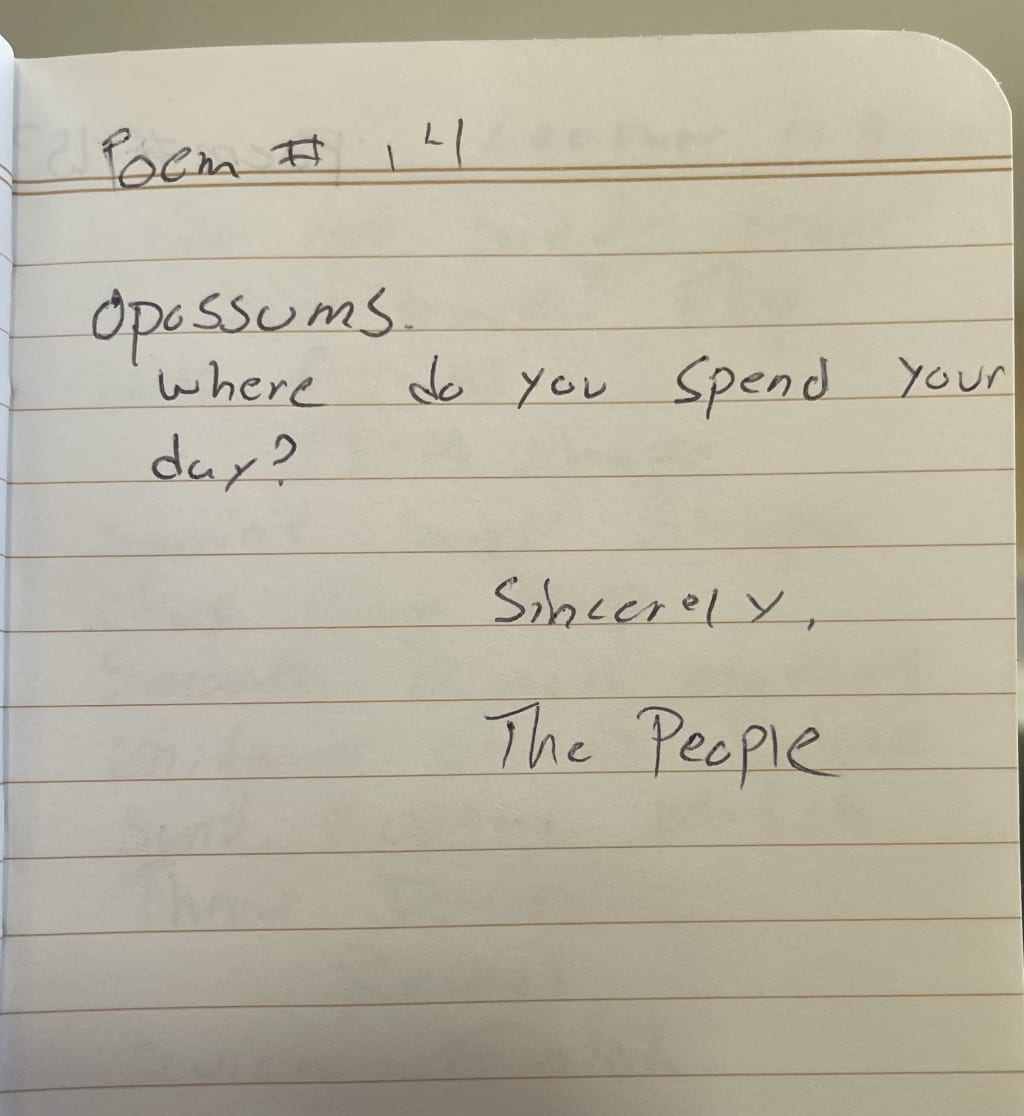 Poem # 14
Opossums.
where do you spend your
day?
Sincerely,
The People